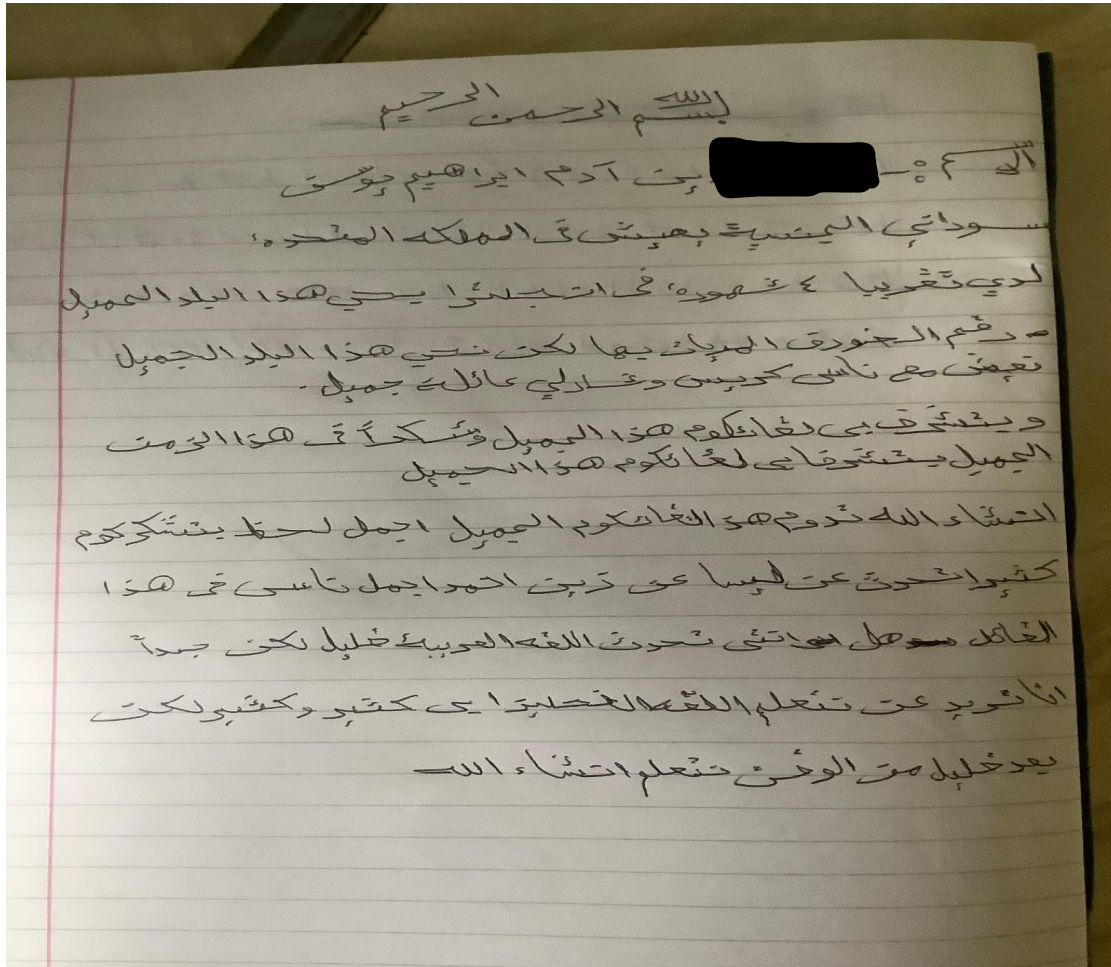 بسم الله الرحمن الرحيم
الاسم :- بن آدم ابراهيم يوسق
سوداني الجنسية بعيش في المملكه المتحده،
لدي تغريبا ٤ شهوره، في انجلترا يحي هذا البلد الجميل
- رغم الخنورق المريات بها لكن نحي هذا البلد الجميل
نعيش مع ناس كريس وشارلي عائلة جميل.
ويتشرف بي لغائكوم هذا الجميل وشكراً في هذا الزمن
الجميل يتشرفا بي لغائكوم هذا الجميل
انشاء الله تدوم هذ الغائكوم الجميل اجمل لحظ يتشكركوم
كثيرا تحدث عن ليسا عن زين احمد اجمل ناس في هذا
الغائل سوهل انني تحدث اللغه العربية خليل لكن جداً
انا نريد عن نتعلم اللغه الانجليزا بي كثير وكثير لكن
بعد خليل من الوقت نتعلم انشاء الله